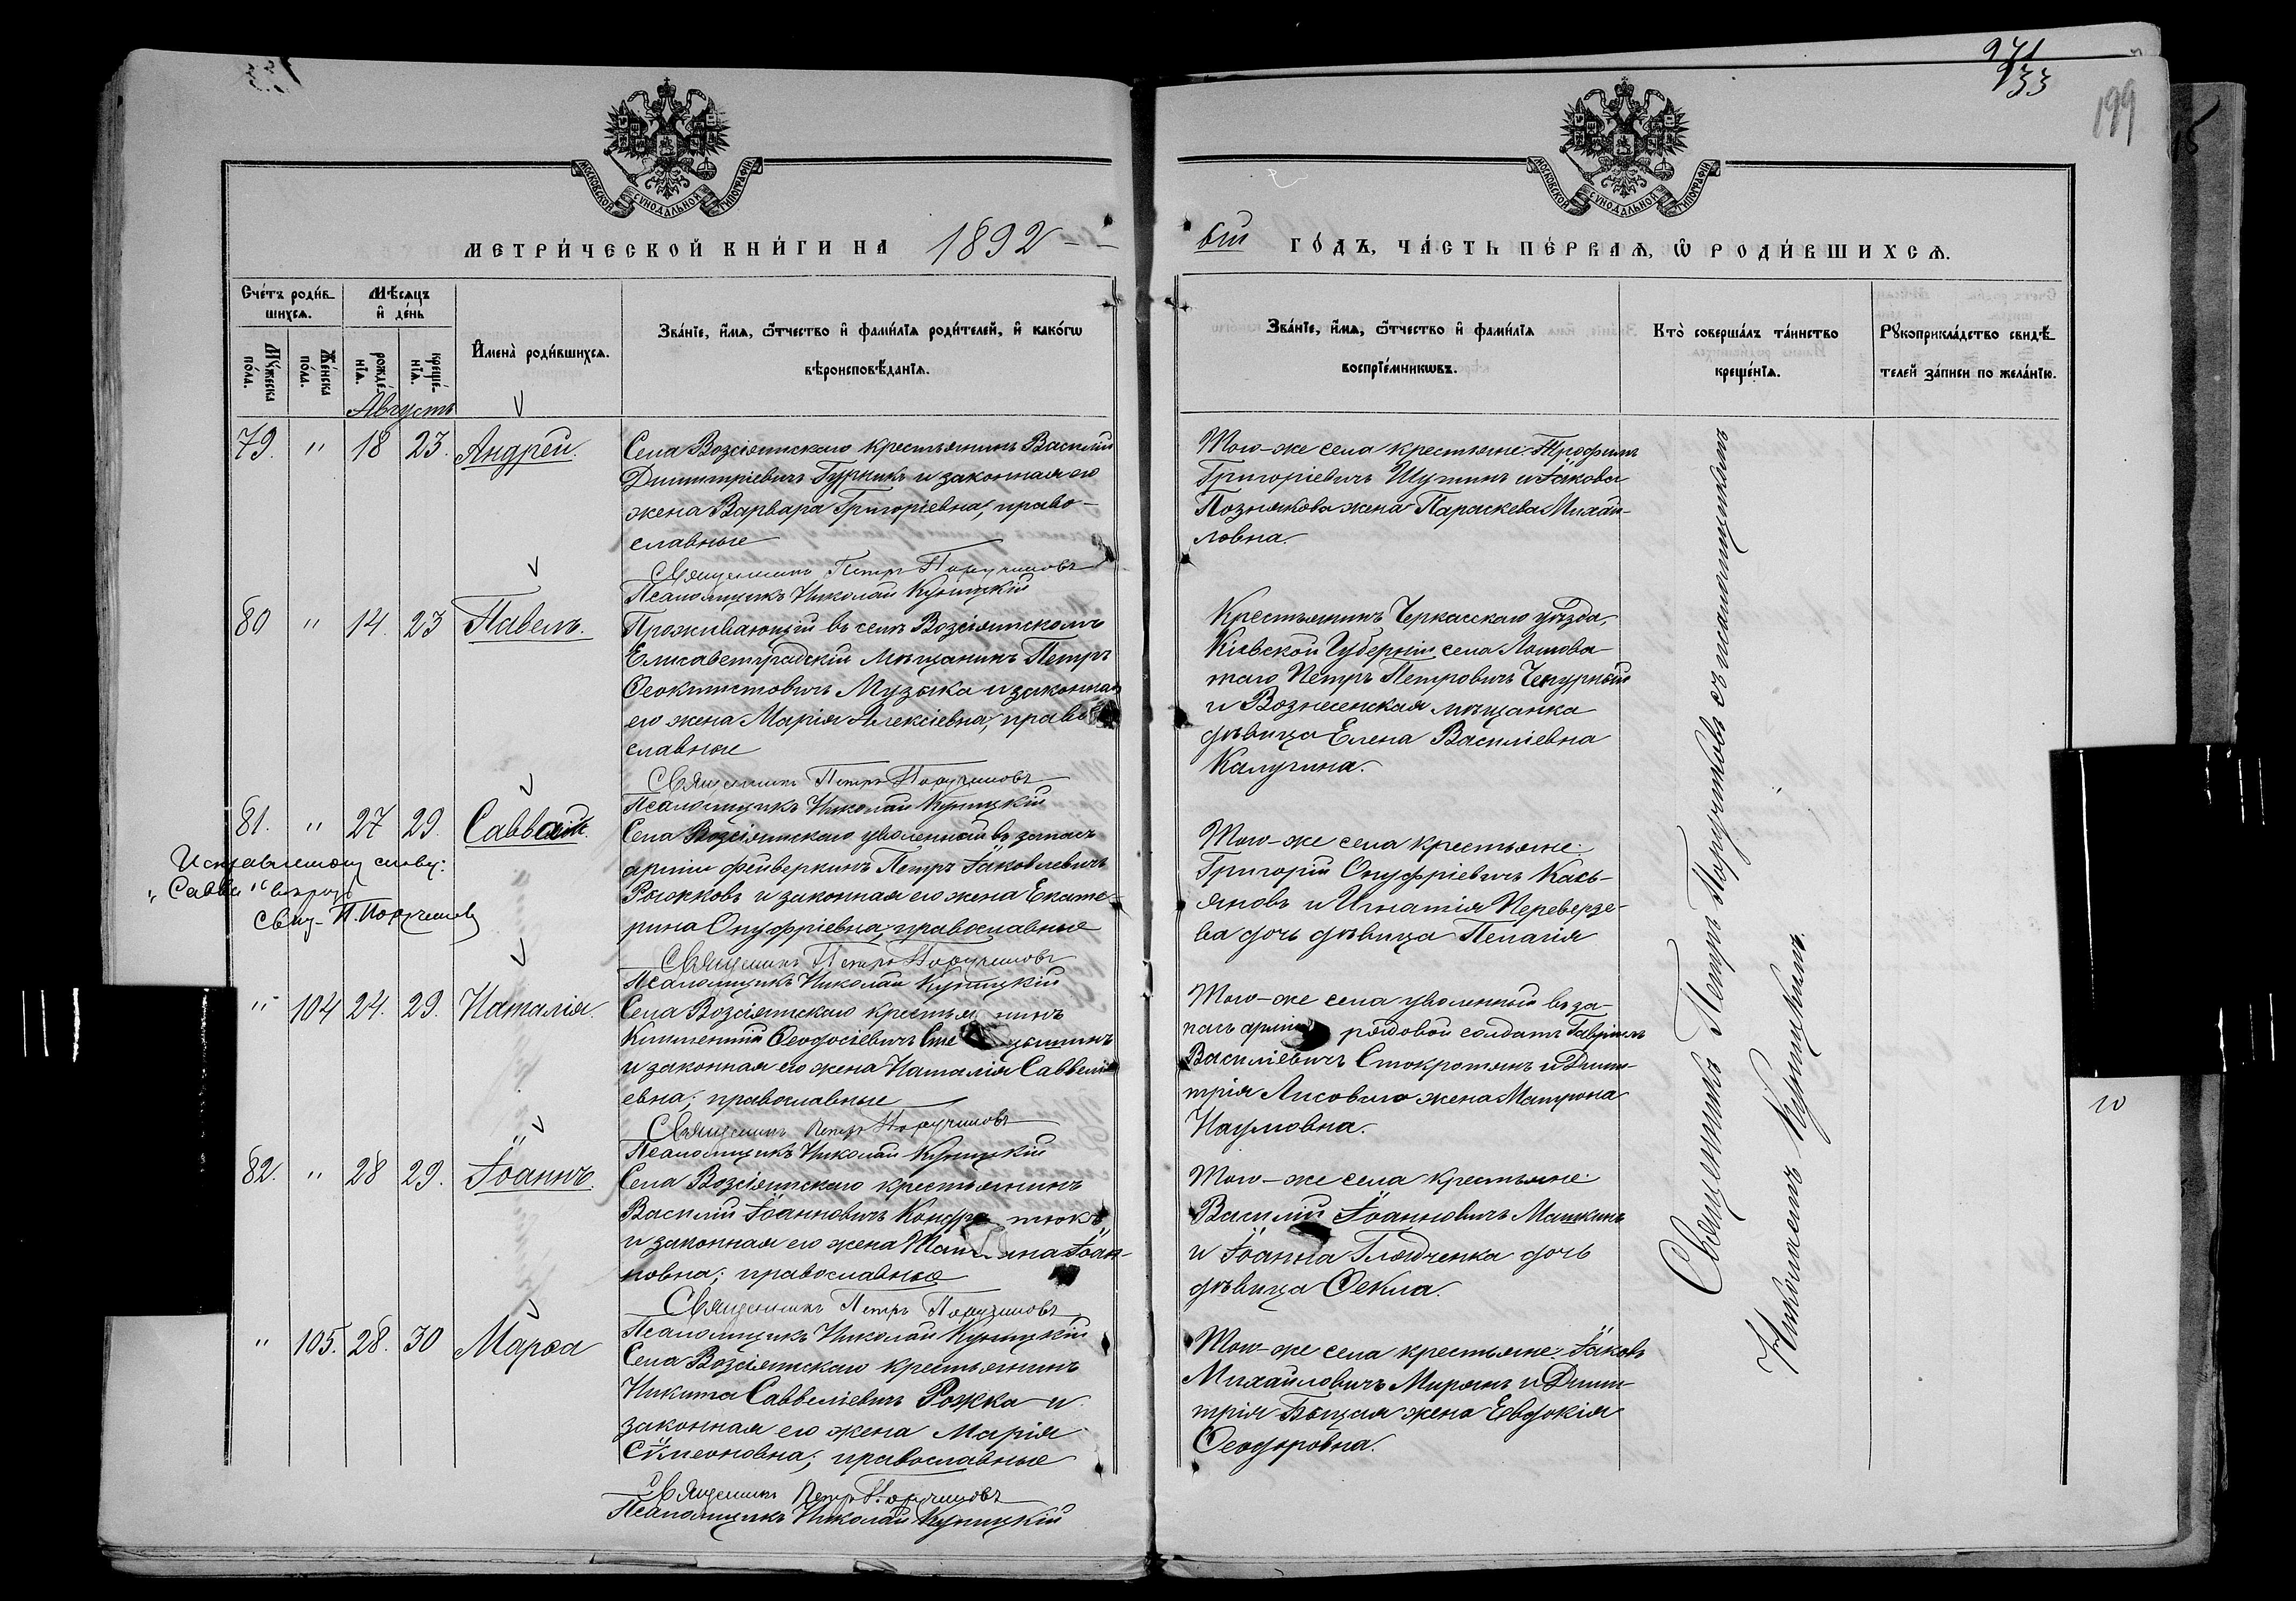 971
933
199
15
МОСКОВСКОЙ СѴНОДАЛЬНОЙ ТИПОГРАФІИ
МОСКОВСКОЙ СѴНОДАЛЬНОЙ ТИПОГРАФІИ
МЕТРИ́ЧЕСКОЙ КНИ́ГИ НА 1892
ый ГО́ДЪ, ЧА́СТЬ ПЕ́РВАѦ, Ѡ҆ РОДИ́ВШИХСѦ.
Сче́тъ роди́вшихсѧ.
Мꙋ́жеска по́ла.
Же́нска по́ла.
Мѣ́сѧцъ и҆ де́нь
рожде́нїѧ.
креще́нїѧ.
И҆мена̀ роди́вшихсѧ.
Зва́нїе, и҆́мѧ, ѻ҆́тчество и҆ фами́лїѧ роди́телей, и҆ како́гѡ
вѣроисповѣ́данїѧ.
Зва́нїе, и҆́мѧ, ѻ҆́тчество и҆ фами́лїѧ
воспрїе́мникѡвъ.
Кто̀ соверша́лъ та́инство
креще́нїѧ.
Рꙋкоприкла́дство свидѣ́-
телей за́писи по жела́нїю.
Августъ
79. " 18 23. Андрей.
Села Возсіятскаго крестьянинъ Василій
Димитріевичъ Гуркинъ и законная его
жена Варвара Григоріевна, право-
славные
Священникъ Петръ Поручиковъ
Псаломщикъ Николай Куницкій
Того-же села крестьяне: Трофимъ
Григоріевичъ Шутинъ и Іакова
Познякова жена Параскева Михаи-
ловна.
80 " 14. 23 Павелъ.
Проживающій въ селѣ Возсіятскомъ
Елисаветградскій мѣщанинъ Петръ
Ѳеоктистовичъ Музыка и законная
его жена Марія Алексіевна, право
славные
Священникъ Петръ Поручиковъ
Псаломщикъ Николай Куницкій
Крестьянинъ Черкасскаго уѣзда,
Кіевской Губерніи села Ломова-
таго Петръ Петровичъ Чепурный
и Вознесенская мѣщанка
дѣвица Елена Василіевна
Калугина.
81. " 27 29. Савва
Исправленному слову:
"Савва" вѣрю:
Свящ. П. Поручиковъ
Села Возсіятскаго уволенный въ запасъ
арміи фейверкинъ Петръ Іаковлевичъ
Рыжковъ и законная его жена Екате-
рина Онуфріевна, православные
Священникъ Петръ Поручиковъ
Псаломщикъ Николай Куницкій
Того-же села крестьяне:
Григорій Онуфріевичъ Кась-
яновъ и Игнатія Переверзе-
ва дочь дѣвица Пелагія
" 104 24. 29. Наталія.
Села Возсіятскаго крестьянинъ
Климентій Ѳеодосіевичъ
и законная его жена Наталія Саввелі
евна; православные
Священникъ Петръ Поручиковъ
Псаломщикъ Николай Куницкій
Того-же села уволенный въ за-
пасъ арміи рядовой солдатъ Гавріилъ
Василіевичъ Стокротянъ и Дими-
трія Лисоваго жена Матрона
Наумовна.
82. " 28 29. Іоаннъ.
Села Возсіятскаго крестьянинъ
Василій Іоанновичъ Кондратюкъ
и законная его жена Татіана Іоан-
новна; православные
Священникъ Петръ Поручиковъ
Псаломщикъ Николай Куницкій
Того-же села крестьяне:
Василій Іоанновичъ Машкинъ
и Іоанна Глядченка дочь
дѣвица Ѳекла.
" 105. 28. 30 Марѳа
Села Возсіятскаго крестьянинъ
Никита Саввеліевичъ Рожка и
законная его жена Марія
Сѵмеоновна; православные
Священникъ Петръ Поручиковъ
Псаломщикъ Николай Куницкій
Того-же села крестьяне: Іаковъ
Михаиловичъ Мирянъ и Дими-
трія жена Евдокія
Ѳеодоровна.
Священникъ Петръ Поручиковъ съ псаломщикомъ
Николаемъ Куницкимъ.